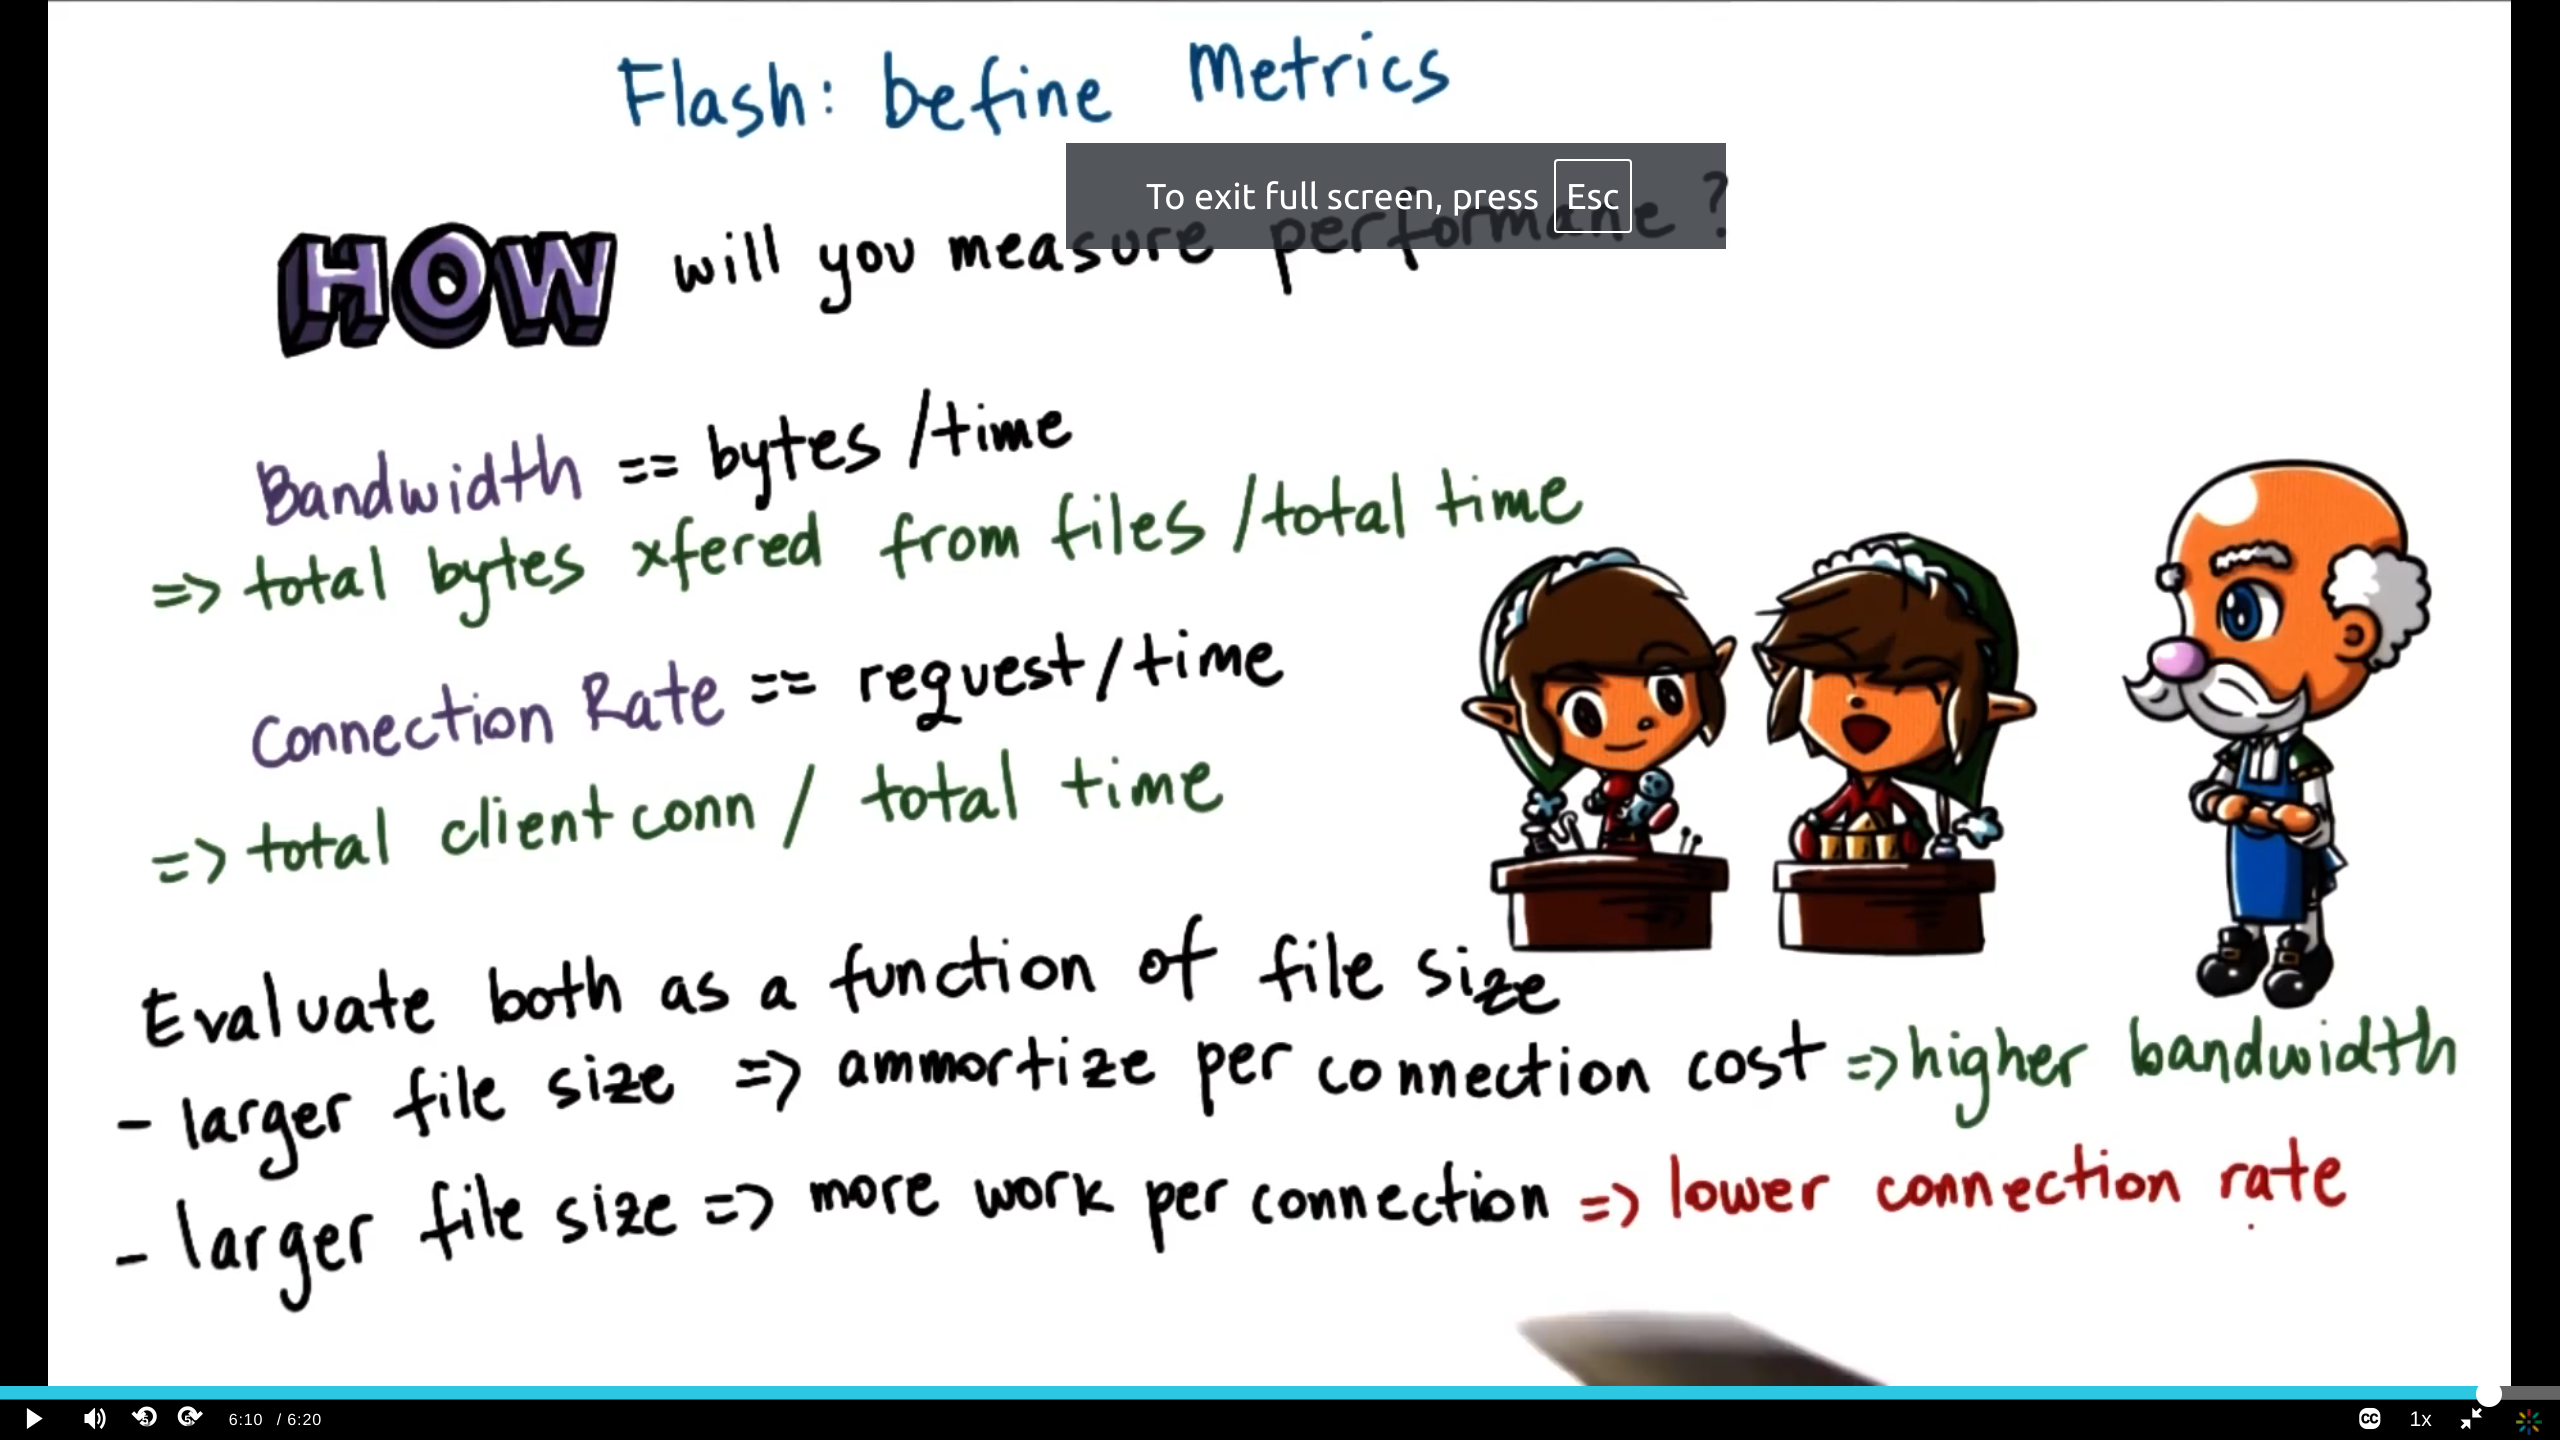 Flash: befine Metrics
To exit full screen, press Esc
HOW will you measure performane ?
Bandwidth == bytes /time
=> total bytes xfered from files /total time
Connection Rate == request/time
=> total client conn / total time
Evaluate both as a function of file size
- larger file size => ammortize per connection cost => higher bandwidth
- larger file size => more work per connection => lower connection rate
6:10 / 6:20
CC 1x